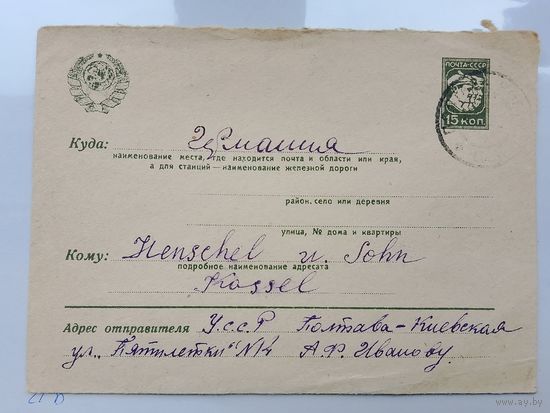 ПОЧТА·СССР
15 КОП.
Куда: Германия
наименование места, где находится почта и области или края,
а для станций—наименование железной дороги
район, село или деревня
улица, № дома и квартиры
Кому: Henschel u. Sohn
подробное наименование адресата
Kassel
Адрес отправителя У.с.с.Р Полтава-Киевская
ул. „Пятилетки" №14 А.Ф. Иванову.
www.ay.by